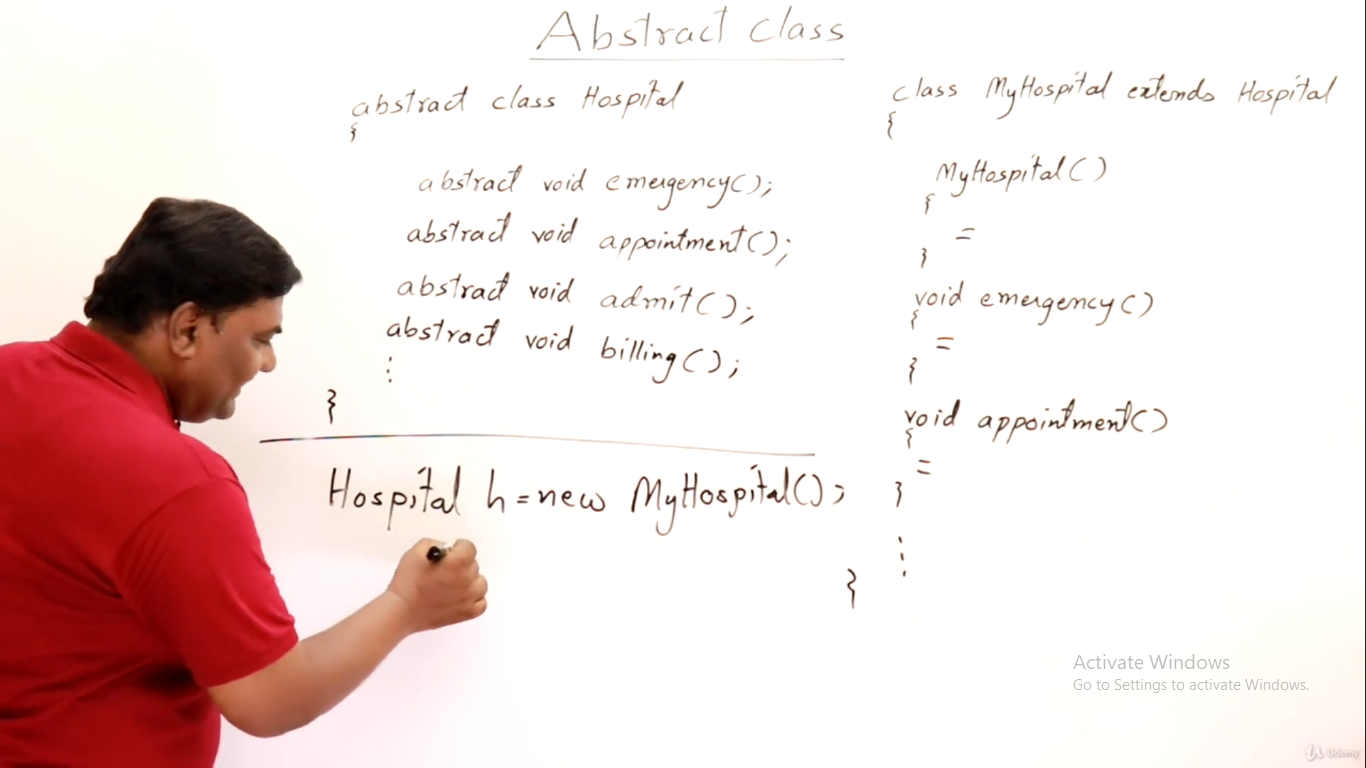 Abstract Class
abstract class Hospital
{
abstract void emergency();
abstract void appointment();
abstract void admit();
abstract void billing();
⋮
}
Hospital h=new MyHospital();
class MyHospital extends Hospital
{
MyHospital()
{
=
}
void emergency()
{
=
}
void appointment()
{
=
}
⋮
}
Activate Windows
Go to Settings to activate Windows.
Udemy